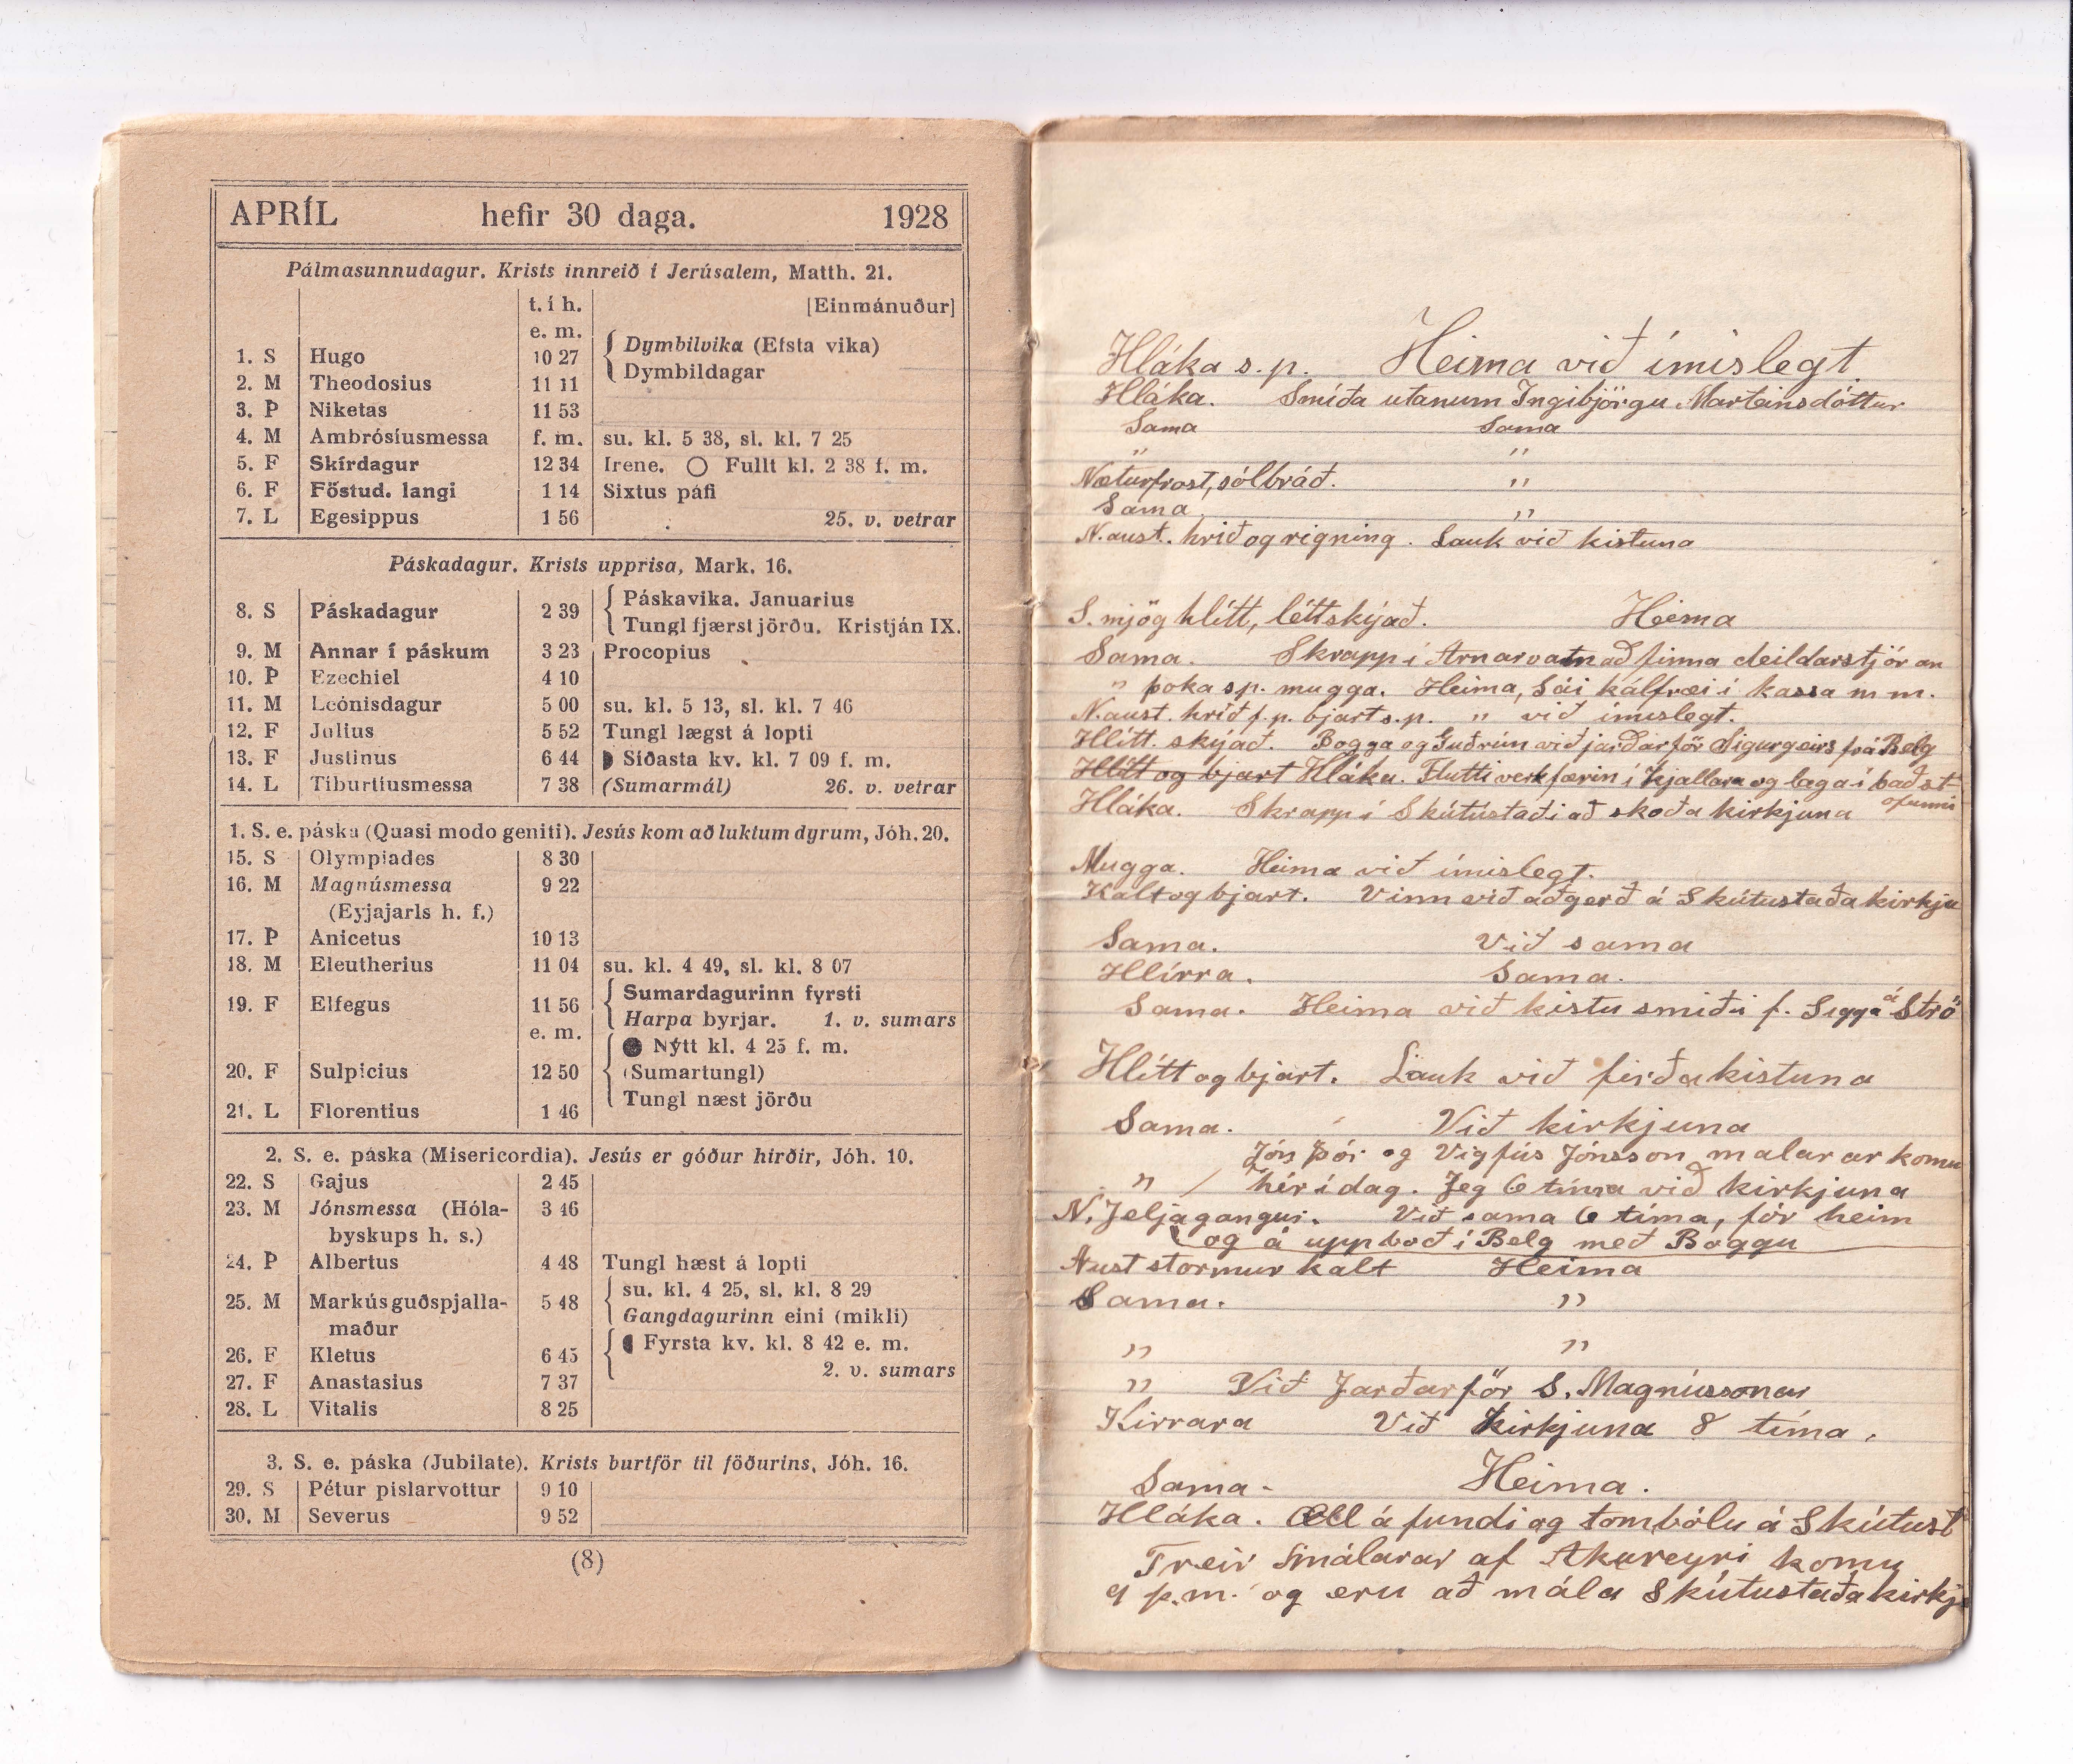 APRÍL hefir 30 daga. 1928
Pálmasunnudagur. Krists innreið í Jerúsalem, Matth. 21.
t. í h. [Einmánuður]
e. m.
1. S Hugo 10 27 Dymbilvika (Efsta vika)
2. M Theodosius 11 11 Dymbildagar
3. Þ Niketas 11 53
4. M Ambrósíusmessa f. m. su. kl. 5 38, sl. kl. 7 25
5. F Skírdagur 12 34 Irene. ○ Fullt kl. 2 38 f. m.
6. F Föstud. langi 1 14 Sixtus páfi
7. L Egesippus 1 56 25. v. vetrar
Páskadagur. Krists upprisa, Mark. 16.
Páskavika. Januarius
8. S Páskadagur 2 39
Tungl fjærst jörðu. Kristján IX.
9. M Annar í páskum 3 23 Procopius
10. Þ Ezechiel 4 10
11. M Leónisdagur 5 00 su. kl. 5 13, sl. kl. 7 46
12. F Julius 5 52 Tungl lægst á lopti
13. F Justinus 6 44 Síðasta kv. kl. 7 09 f. m.
14. L Tiburtíusmessa 7 38 (Sumarmál) 26. v. vetrar
1. S. e. páska (Quasi modo geniti). Jesús kom að luktum dyrum, Jóh. 20.
15. S Olympiades 8 30
16. M Magnúsmessa 9 22
(Eyjajarls h. f.)
17. Þ Anicetus 10 13
18. M Eleutherius 11 04 su. kl. 4 49, sl. kl. 8 07
Sumardagurinn fyrsti
19. F Elfegus 11 56
Harpa byrjar. 1. v. sumars
e. m.
Nýtt kl. 4 25 f. m.
20. F Sulpicius 12 50 (Sumartungl)
Tungl næst jörðu
21. L Florentius 1 46
2. S. e. páska (Misericordia). Jesús er góður hirðir, Jóh. 10.
22. S Gajus 2 45
23. M Jónsmessa (Hóla- 3 46
byskups h. s.)
24. Þ Albertus 4 48 Tungl hæst á lopti
su. kl. 4 25, sl. kl. 8 29
25. M Markús guðspjalla- 5 48
Gangdagurinn eini (mikli)
maður
Fyrsta kv. kl. 8 42 e. m.
26. F Kletus 6 45
2. v. sumars
27. F Anastasius 7 37
28. L Vitalis 8 25
3. S. e. páska (Jubilate). Krists burtför til föðurins, Jóh. 16.
29. S Pétur pislarvottur 9 10
30. M Severus 9 52
(8)
Hláka s. p. Heima við ímislegt
Hláka. Smíða utanum Ingibjörgu Marteinsdóttur
Sama Sama
" "
Næturfrost, sólbráð. "
Sama "
N. aust. hríð og rigning. Lauk við kistuna
S. mjög hlítt, léttskýað. Heima
Sama. Skrapp í Arnarvatn að finna deildarstjóran
" þoka s.p. mugga. Heima, Sái kálfræi í kassa m m.
N. aust. hríð f.p. bjart s.p. " við ímislegt.
Hlítt. skýað. Bogga og Guðrún við jarðarför Sigurgeirs frá Belg
Hlítt og bjart Hláka. Flutti verkfærin í kjallara og laga í baðst-
ofunni
Hláka. Skrapp í Skútustaði að skoða kirkjuna
Mugga. Heima við ímislegt.
Kalt og bjart. Vinn við aðgerð á Skútustaðakirkju
Sama. Við sama
Hlírra. Sama.
Sama. Heima við kistu smiði f. Sigga á Strö
Hlítt og bjart. Lauk við firðakistuna
Sama. Við kirkjuna
Jón Þór og Vigfús Jónsson malarar komu
" hér í dag. Jeg 6 tíma við kirkjuna
N. Jeljagangur. Við sama 6 tíma, fór heim
og á uppboð í Belg með Boggu
Aust stormur kalt Heima
Sama. "
" "
" Við Jarðarför S. Magnússonar
Kirrara Við kirkjuna 8 tíma.
Sama - Heima.
Hláka. Öll á fundi og tombólu á Skútust
Treir Smálarar af Akureyri komu
9 þ.m. og eru að mála Skútustaðakirkj